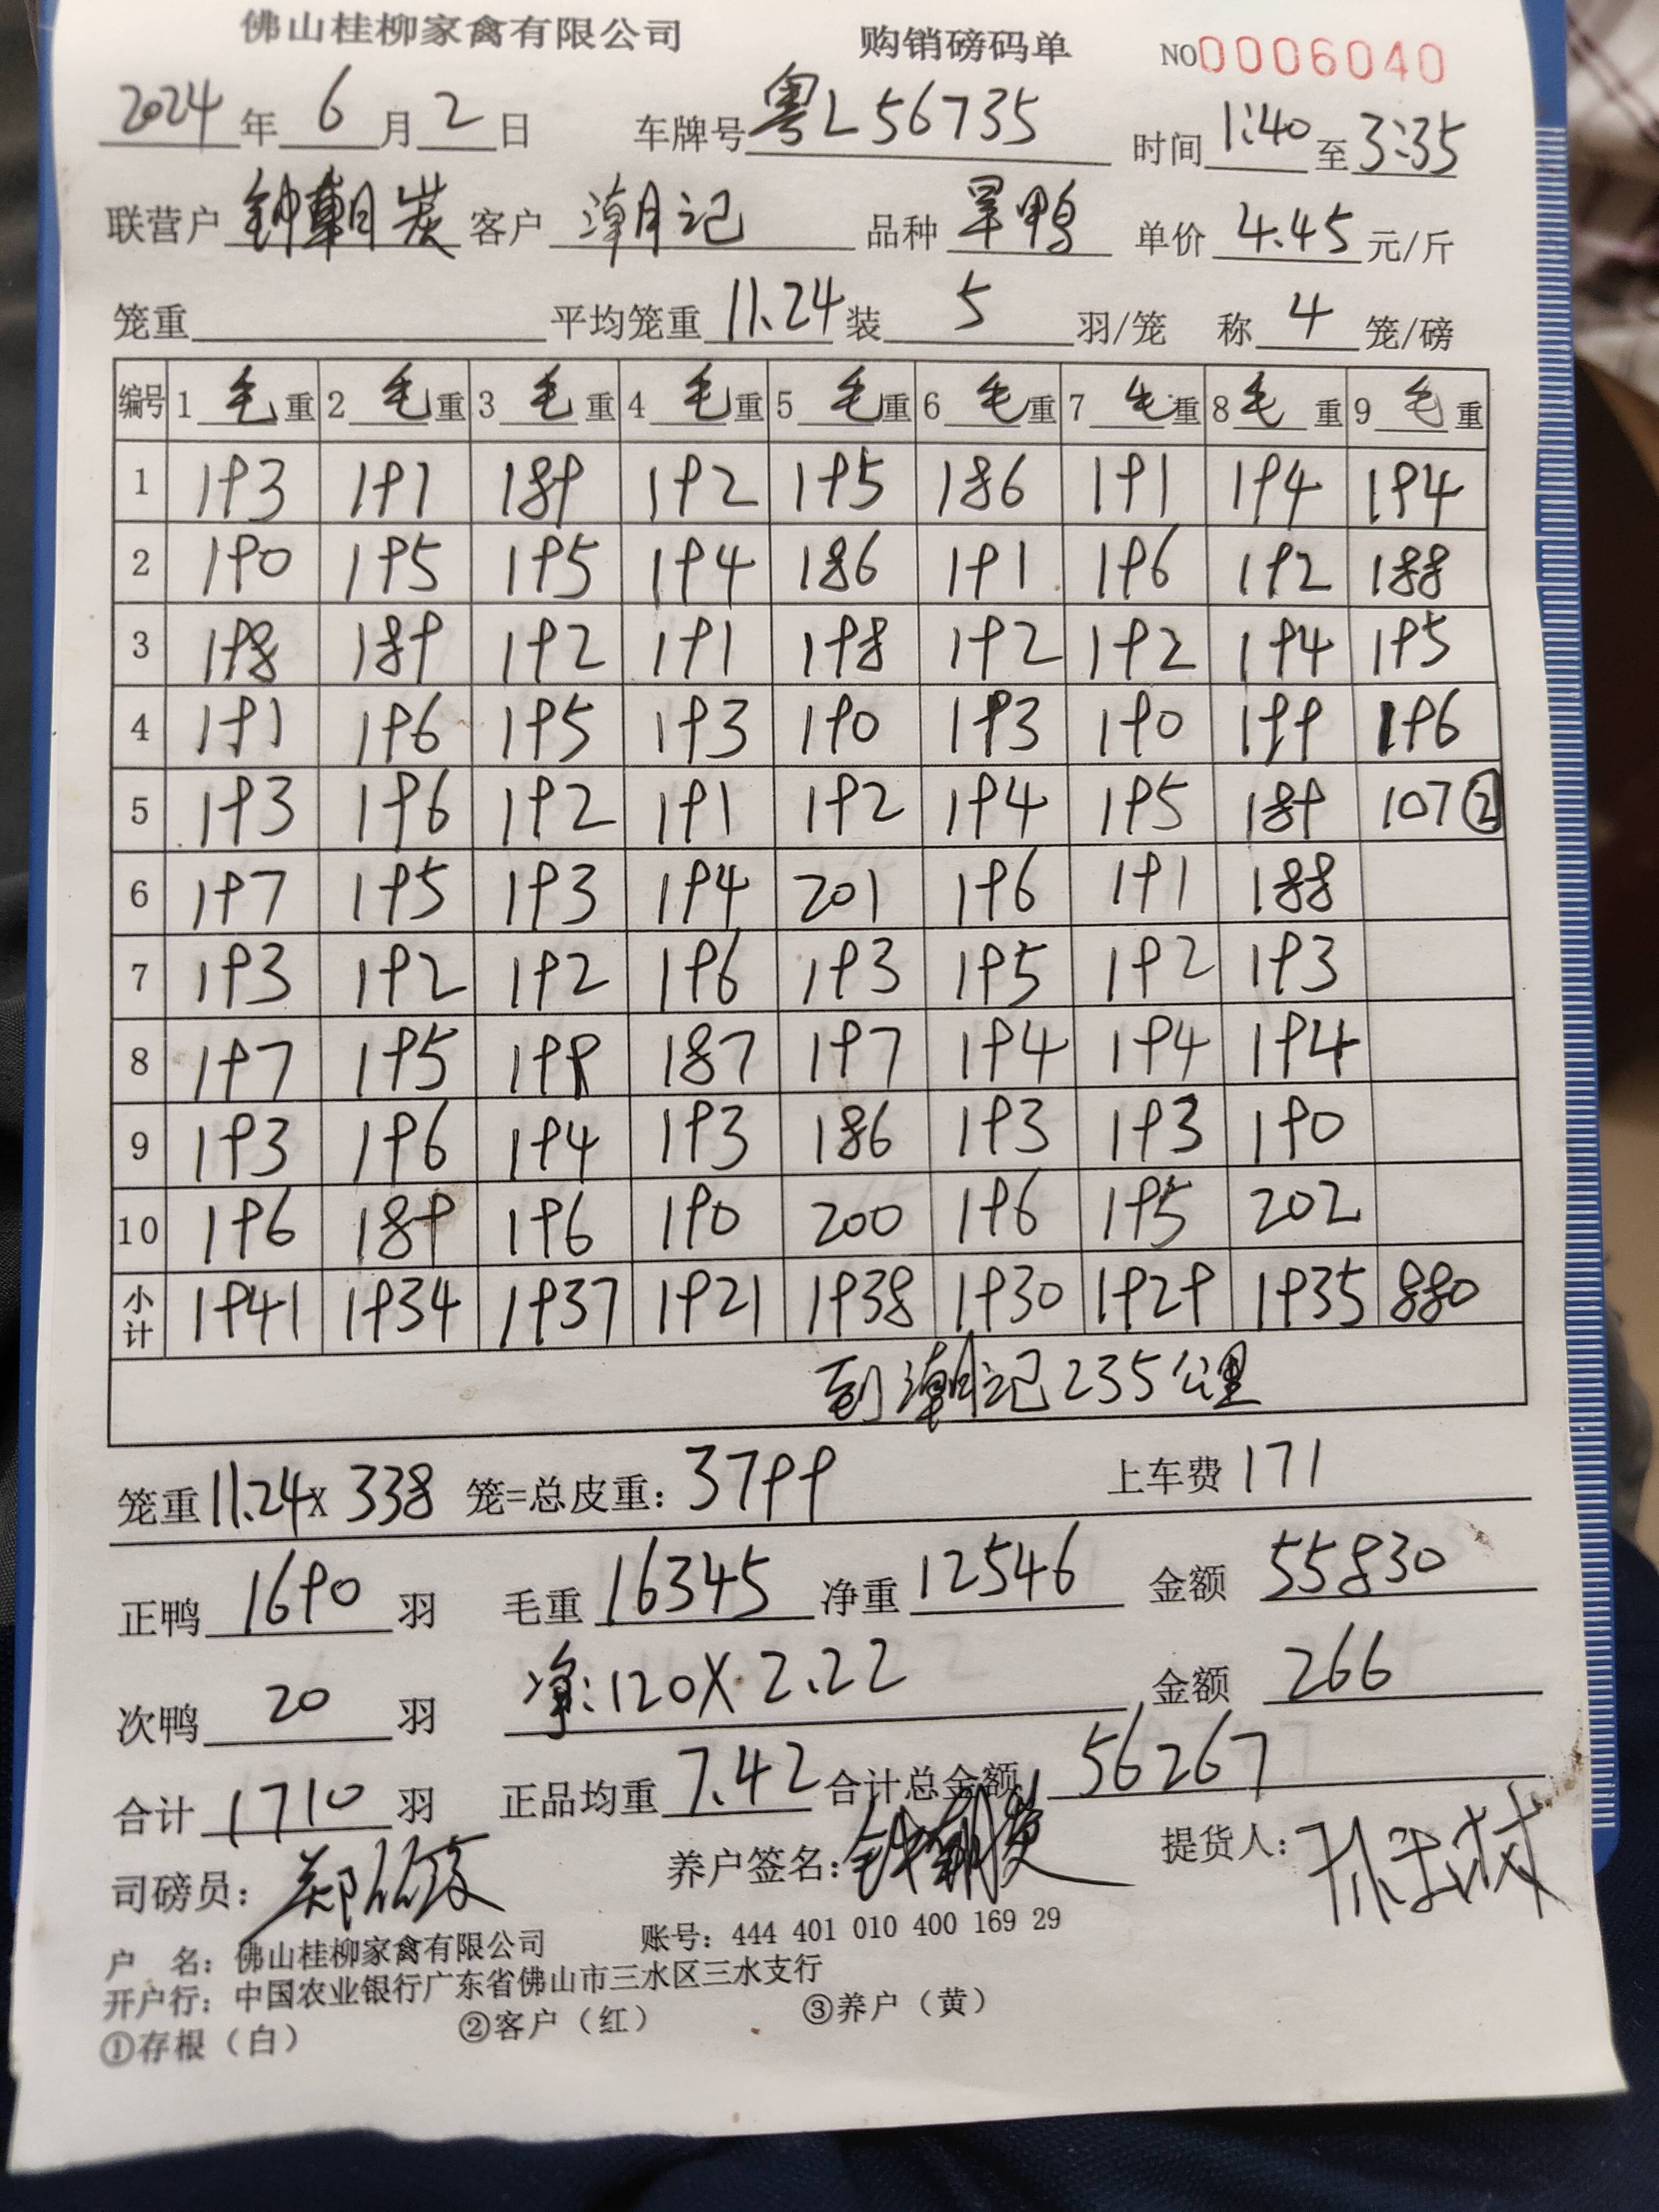 佛山桂柳家禽有限公司 购销磅码单 NO0006040
2024年6月2日 车牌号粤L56735 时间1:40至3:35
联营户 钟朝 客户 潮记 品种 旱鸭 单价4.45元/斤
笼重 平均笼重11.24装5羽/笼 称4笼/磅
编号 1毛重 2毛重 3毛重 4毛重 5毛重 6毛重 7毛重 8毛重 9毛重
1 193 191 189 192 195 186 191 194 194
2 190 195 195 194 186 191 196 192 188
3 198 189 192 191 198 192 192 194 195
4 191 196 195 193 190 193 190 199 196
5 193 196 192 191 192 194 195 189 107②
6 197 195 193 194 201 196 191 188
7 193 192 192 196 193 195 192 193
8 197 195 199 187 197 194 194 194
9 193 196 194 193 186 193 193 190
10 196 189 196 190 200 196 195 202
小计 1941 1934 1937 1921 1938 1930 1929 1935 880
到潮记235公里
笼重11.24X338笼=总皮重:3799 上车费171
正鸭1690羽 毛重16345净重12546 金额55830
次鸭20羽 净:120X2.22 金额266
合计1710羽 正品均重7.42合计总金额56267
司磅员: 郑 养户签名:钟朝 提货人:
户 名:佛山桂柳家禽有限公司 账号:444 401 010 400 169 29
开户行:中国农业银行广东省佛山市三水区三水支行
①存根(白) ②客户(红) ③养户(黄)